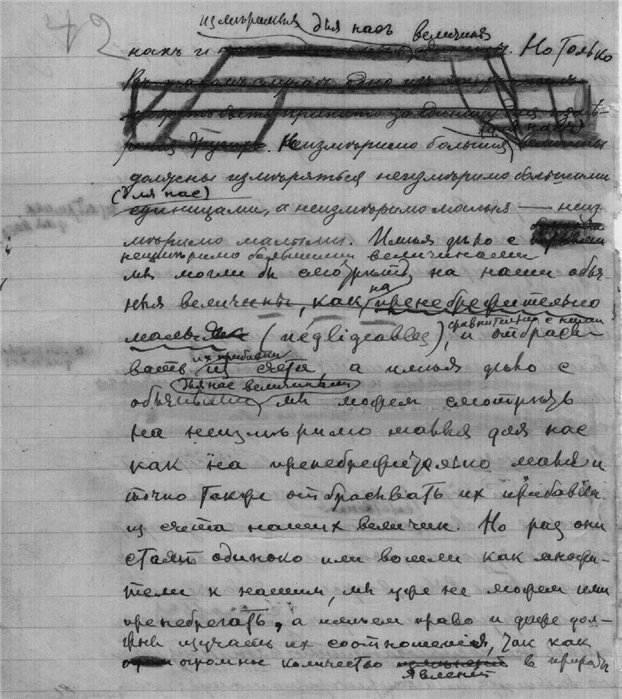 42
измѣримыя для насъ величины
какъ и . Но только
. Неизмѣримо большія (для насъ)
должны измѣряться неизмѣримо большими
(для нас)
единицами, а неизмѣримо малыя — неиз
мѣримо малыми. Имѣя дѣло с
неизмѣримо большими величинами
мы могли бы смотрѣть на наши обы
ныя величины, как на пренебрежительно
малыя (négligeables), сравнительно с ними и отбрасы
вать их прибавки из счета, а имѣя дѣло с
обычными для нас величинами мы можем смотрѣть
на неизмѣримо малыя для нас
как на пренебрежительно малыя и
точно также отбрасывать их прибавки
из счета наших величин. Но раз они
стоят одиноко или вошли как множи-
тели к нашим, мы уже не можем ими
пренебрегать, а имѣем право и даже дол-
жны изучать их соотношенія, так как
огромное количество явленій в природѣ